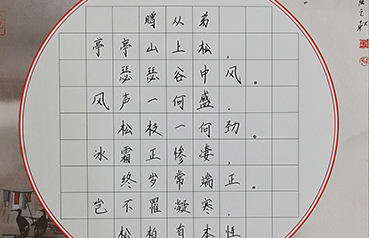 赠从弟
亭亭山上松，
瑟瑟谷中风。
风声一何盛，
松枝一何劲。
冰霜正惨凄，
终岁常端正。
岂不罹凝寒，
松柏有本性